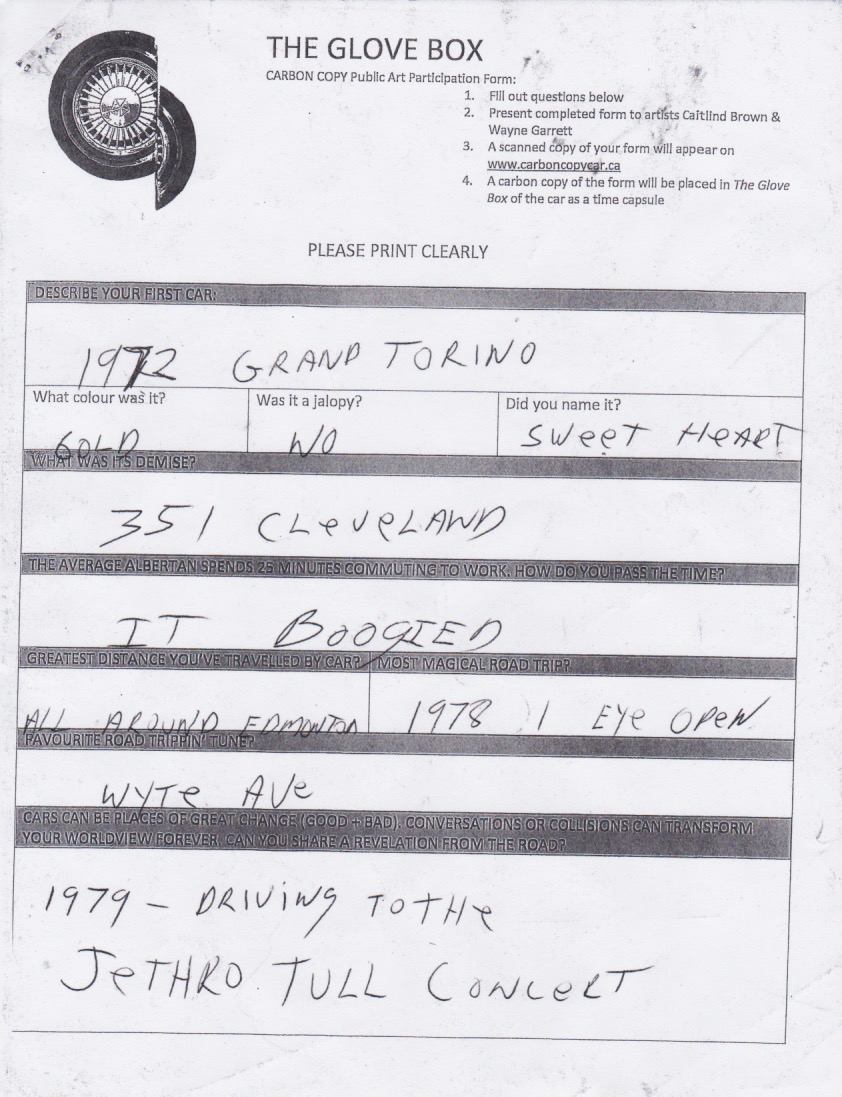 THE GLOVE BOX
CARBON COPY Public Art Participation Form:
1. Fill out questions below
2. Present completed form to artists Caitlind Brown &
Wayne Garrett
3. A scanned copy of your form will appear on
www.carboncopycar.ca
4. A carbon copy of the form will be placed in The Glove
Box of the car as a time capsule
PLEASE PRINT CLEARLY
DESCRIBE YOUR FIRST CAR:
1972 GRAND TORINO
What colour was it? Was it a jalopy? Did you name it?
GOLD NO SWeeT HeART
WHAT WAS ITS DEMISE?
351 CLeVeLAND
THE AVERAGE ALBERTAN SPENDS 25 MINUTES COMMUTING TO WORK. HOW DO YOU PASS THE TIME?
IT BOOGIED
GREATEST DISTANCE YOU'VE TRAVELLED BY CAR? MOST MAGICAL ROAD TRIP?
ALL AROUND EDMONTON 1978 1 EYe OPeN
FAVOURITE ROAD TRIPPIN' TUNE?
WYTe AVe
CARS CAN BE PLACES OF GREAT CHANGE (GOOD + BAD). CONVERSATIONS OR COLLISIONS CAN TRANSFORM
YOUR WORLDVIEW FOREVER. CAN YOU SHARE A REVELATION FROM THE ROAD?
1979 - DRIVING TO THe
JeTHRO TULL CONCeRT